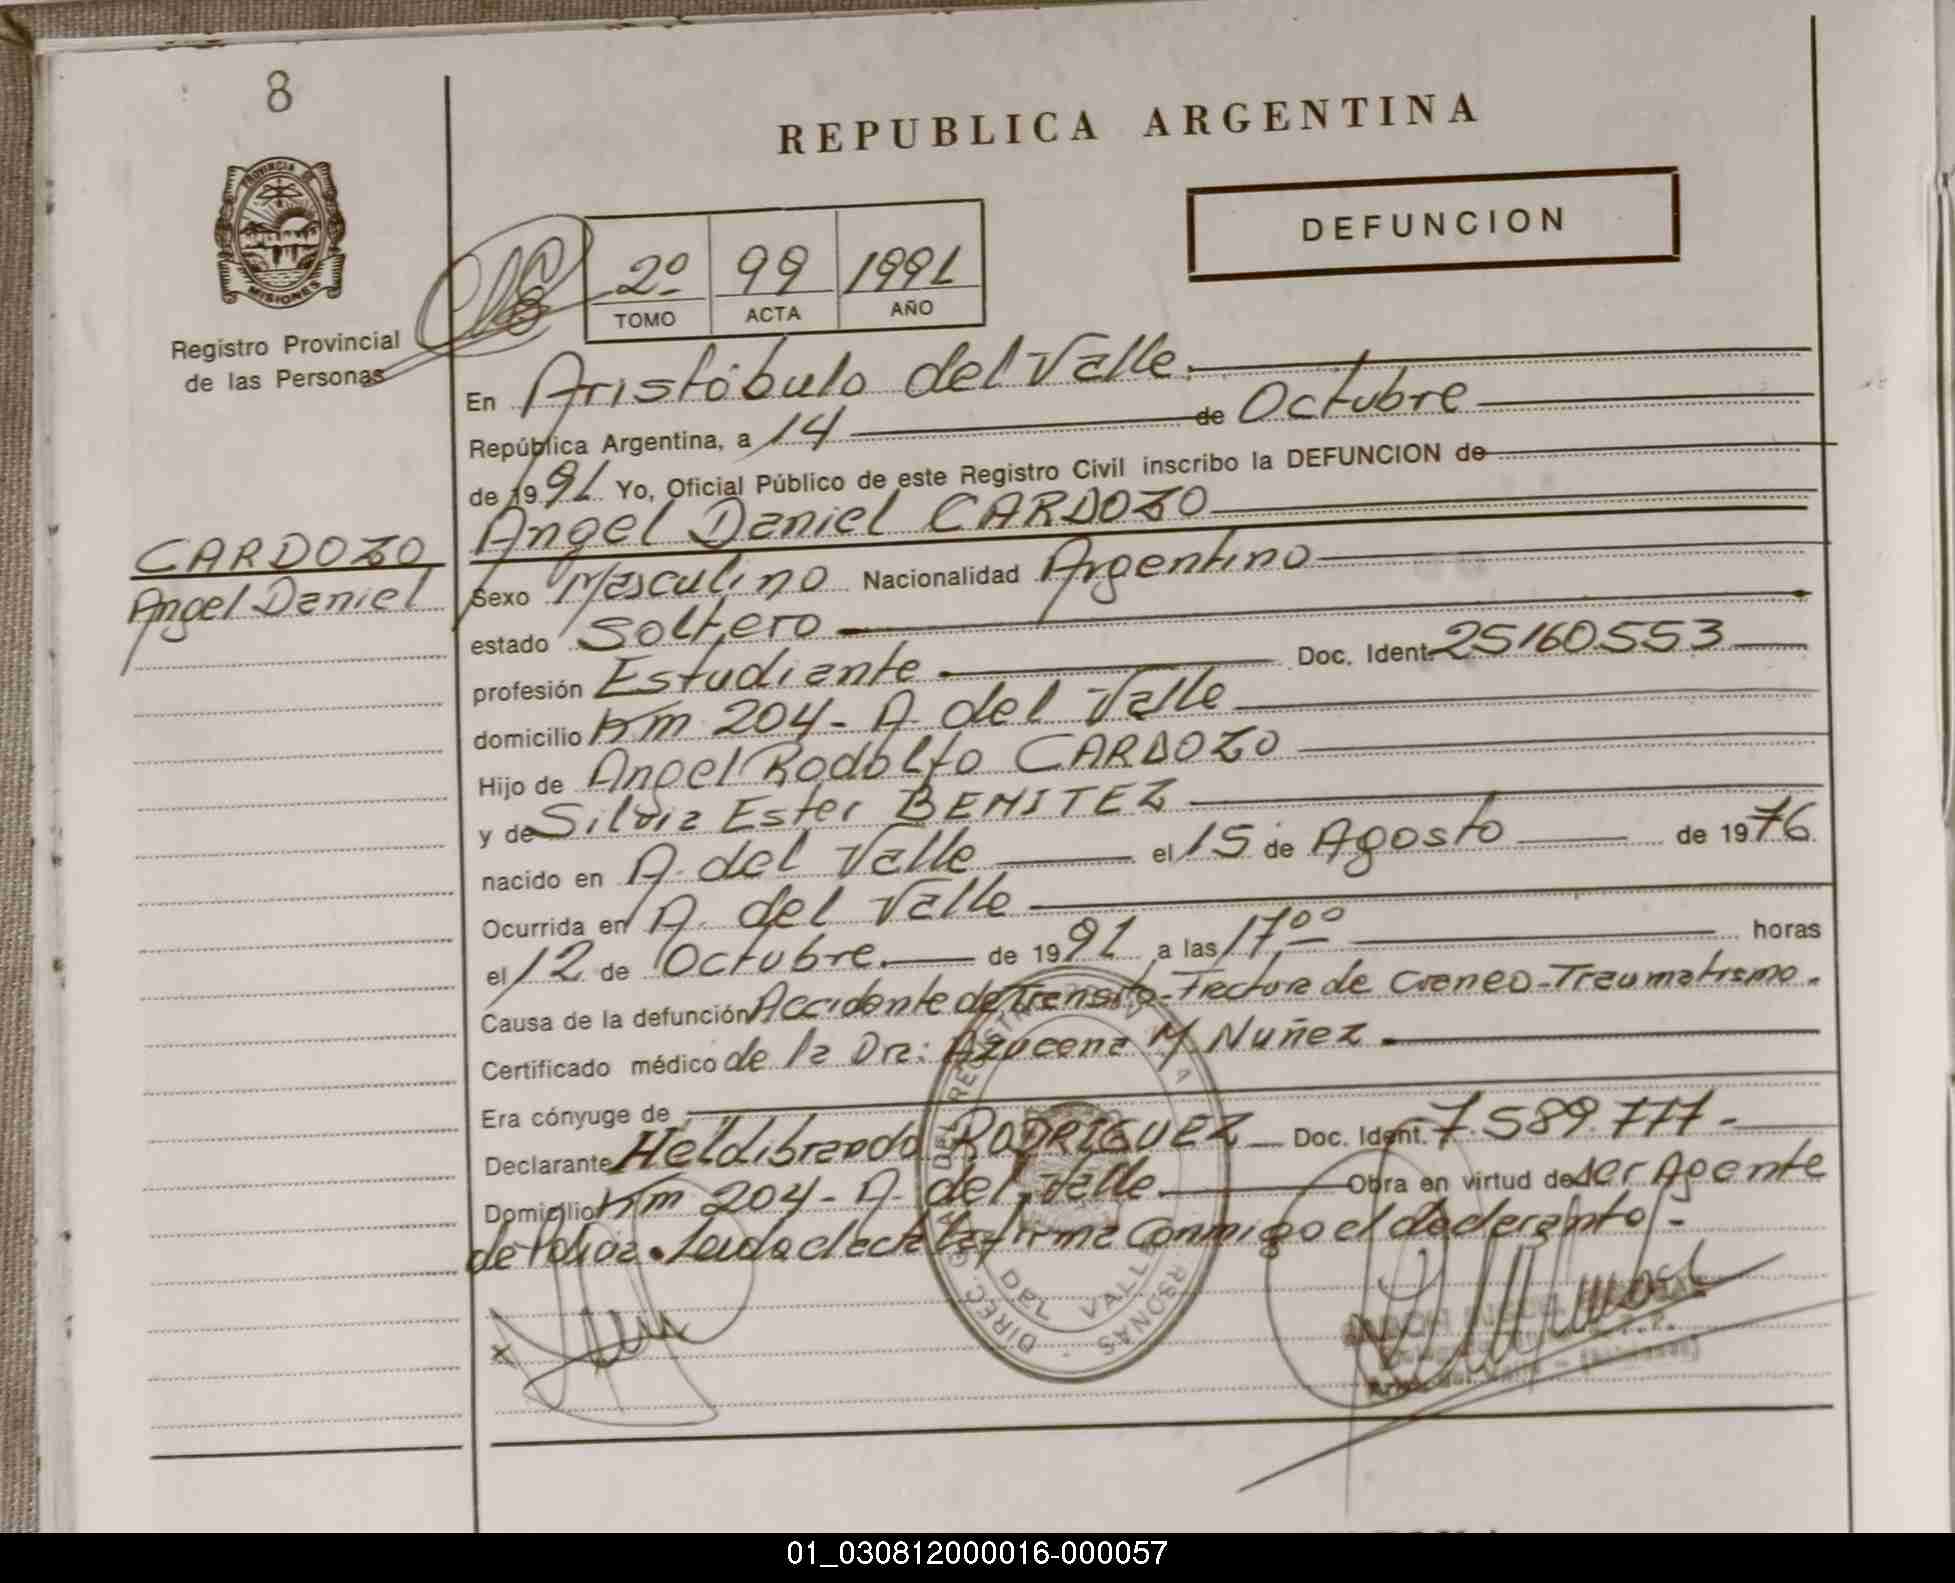 8
REPUBLICA ARGENTINA
DEFUNCION
PROVINCIA DE
MISIONES
Registro Provincial
de las Personas
2º 99 1991
TOMO ACTA AÑO
En Aristóbulo del Valle.
República Argentina, a 14 de Octubre
de 1991 Yo, Oficial Público de este Registro Civil inscribo la DEFUNCION de
Angel Daniel CARDOZO
CARDOZO
Angel Daniel
Sexo Masculino Nacionalidad Argentino
estado Soltero
profesión Estudiante Doc. Ident. 25160553
domicilio Km 204 - A. del Valle
Hijo de Angel Rodolfo CARDOZO
y de Silvia Ester BENITEZ
nacido en A. del Valle el 15 de Agosto de 1976
Ocurrida en A. del Valle
el 12 de Octubre. de 1991 a las 17⁰⁰ horas
Causa de la defunción Accidente de Transito - Frectura de Craneo - Traumatismo.
Certificado médico de la Dra: Azucena M Nuñez
Era cónyuge de
Declarante Heldibrando RODRIGUEZ Doc. Ident. 7.589.777.-
Domicilio Km 204 - A. del Valle Obra en virtud de ser Agente
de Policia. Leida el acta la firma conmigo el declarante.-
x
DIREC. DEL REGISTRO
PERSONAS
DEL VALLE
01_030812000016-000057